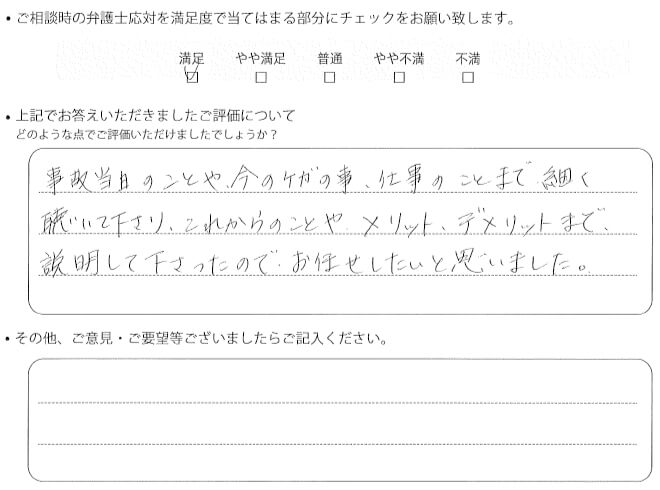 ・ご相談時の弁護士応対を満足度で当てはまる部分にチェックをお願い致します。
満足 やや満足 普通 やや不満 不満
☑ □ □ □ □
・上記でお答えいただきましたご評価について
どのような点でご評価いただけましたでしょうか？
事故当日のことや、今のケガの事、仕事のことまで細く
聴いて下さり、これからのことや、メリット、デメリットまで、
説明して下さったので、お任せしたいと思いました。
・その他、ご意見・ご要望等ございましたらご記入ください。